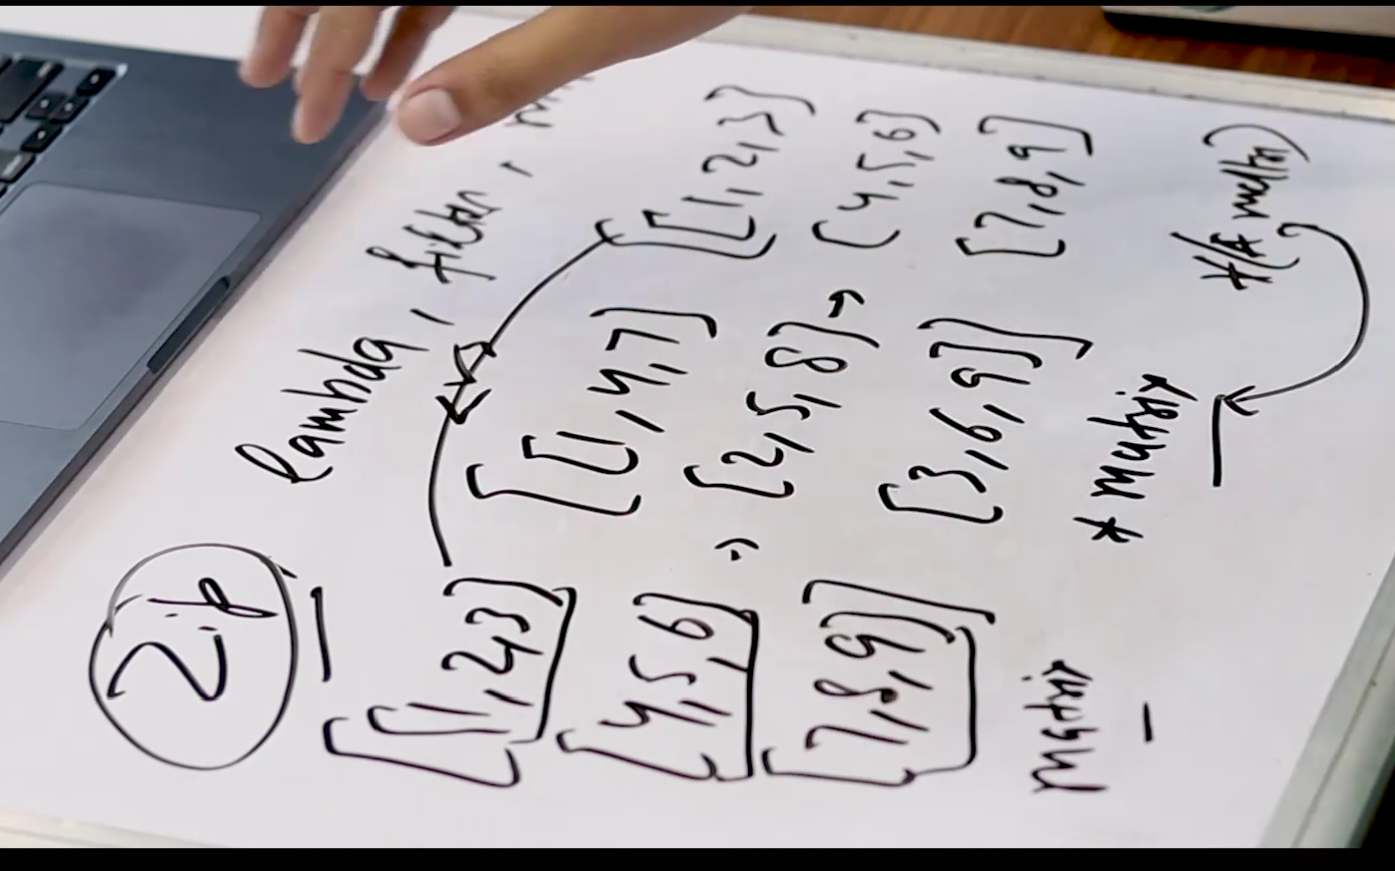 Zip
lambda, filter,
[[1,2,3]
[4,5,6]
[7,8,9]]
matrix
[[1,4,7]
[2,5,8]
[3,6,9]]
* matrix
[[1,2,3]
[4,5,6]
[7,8,9]